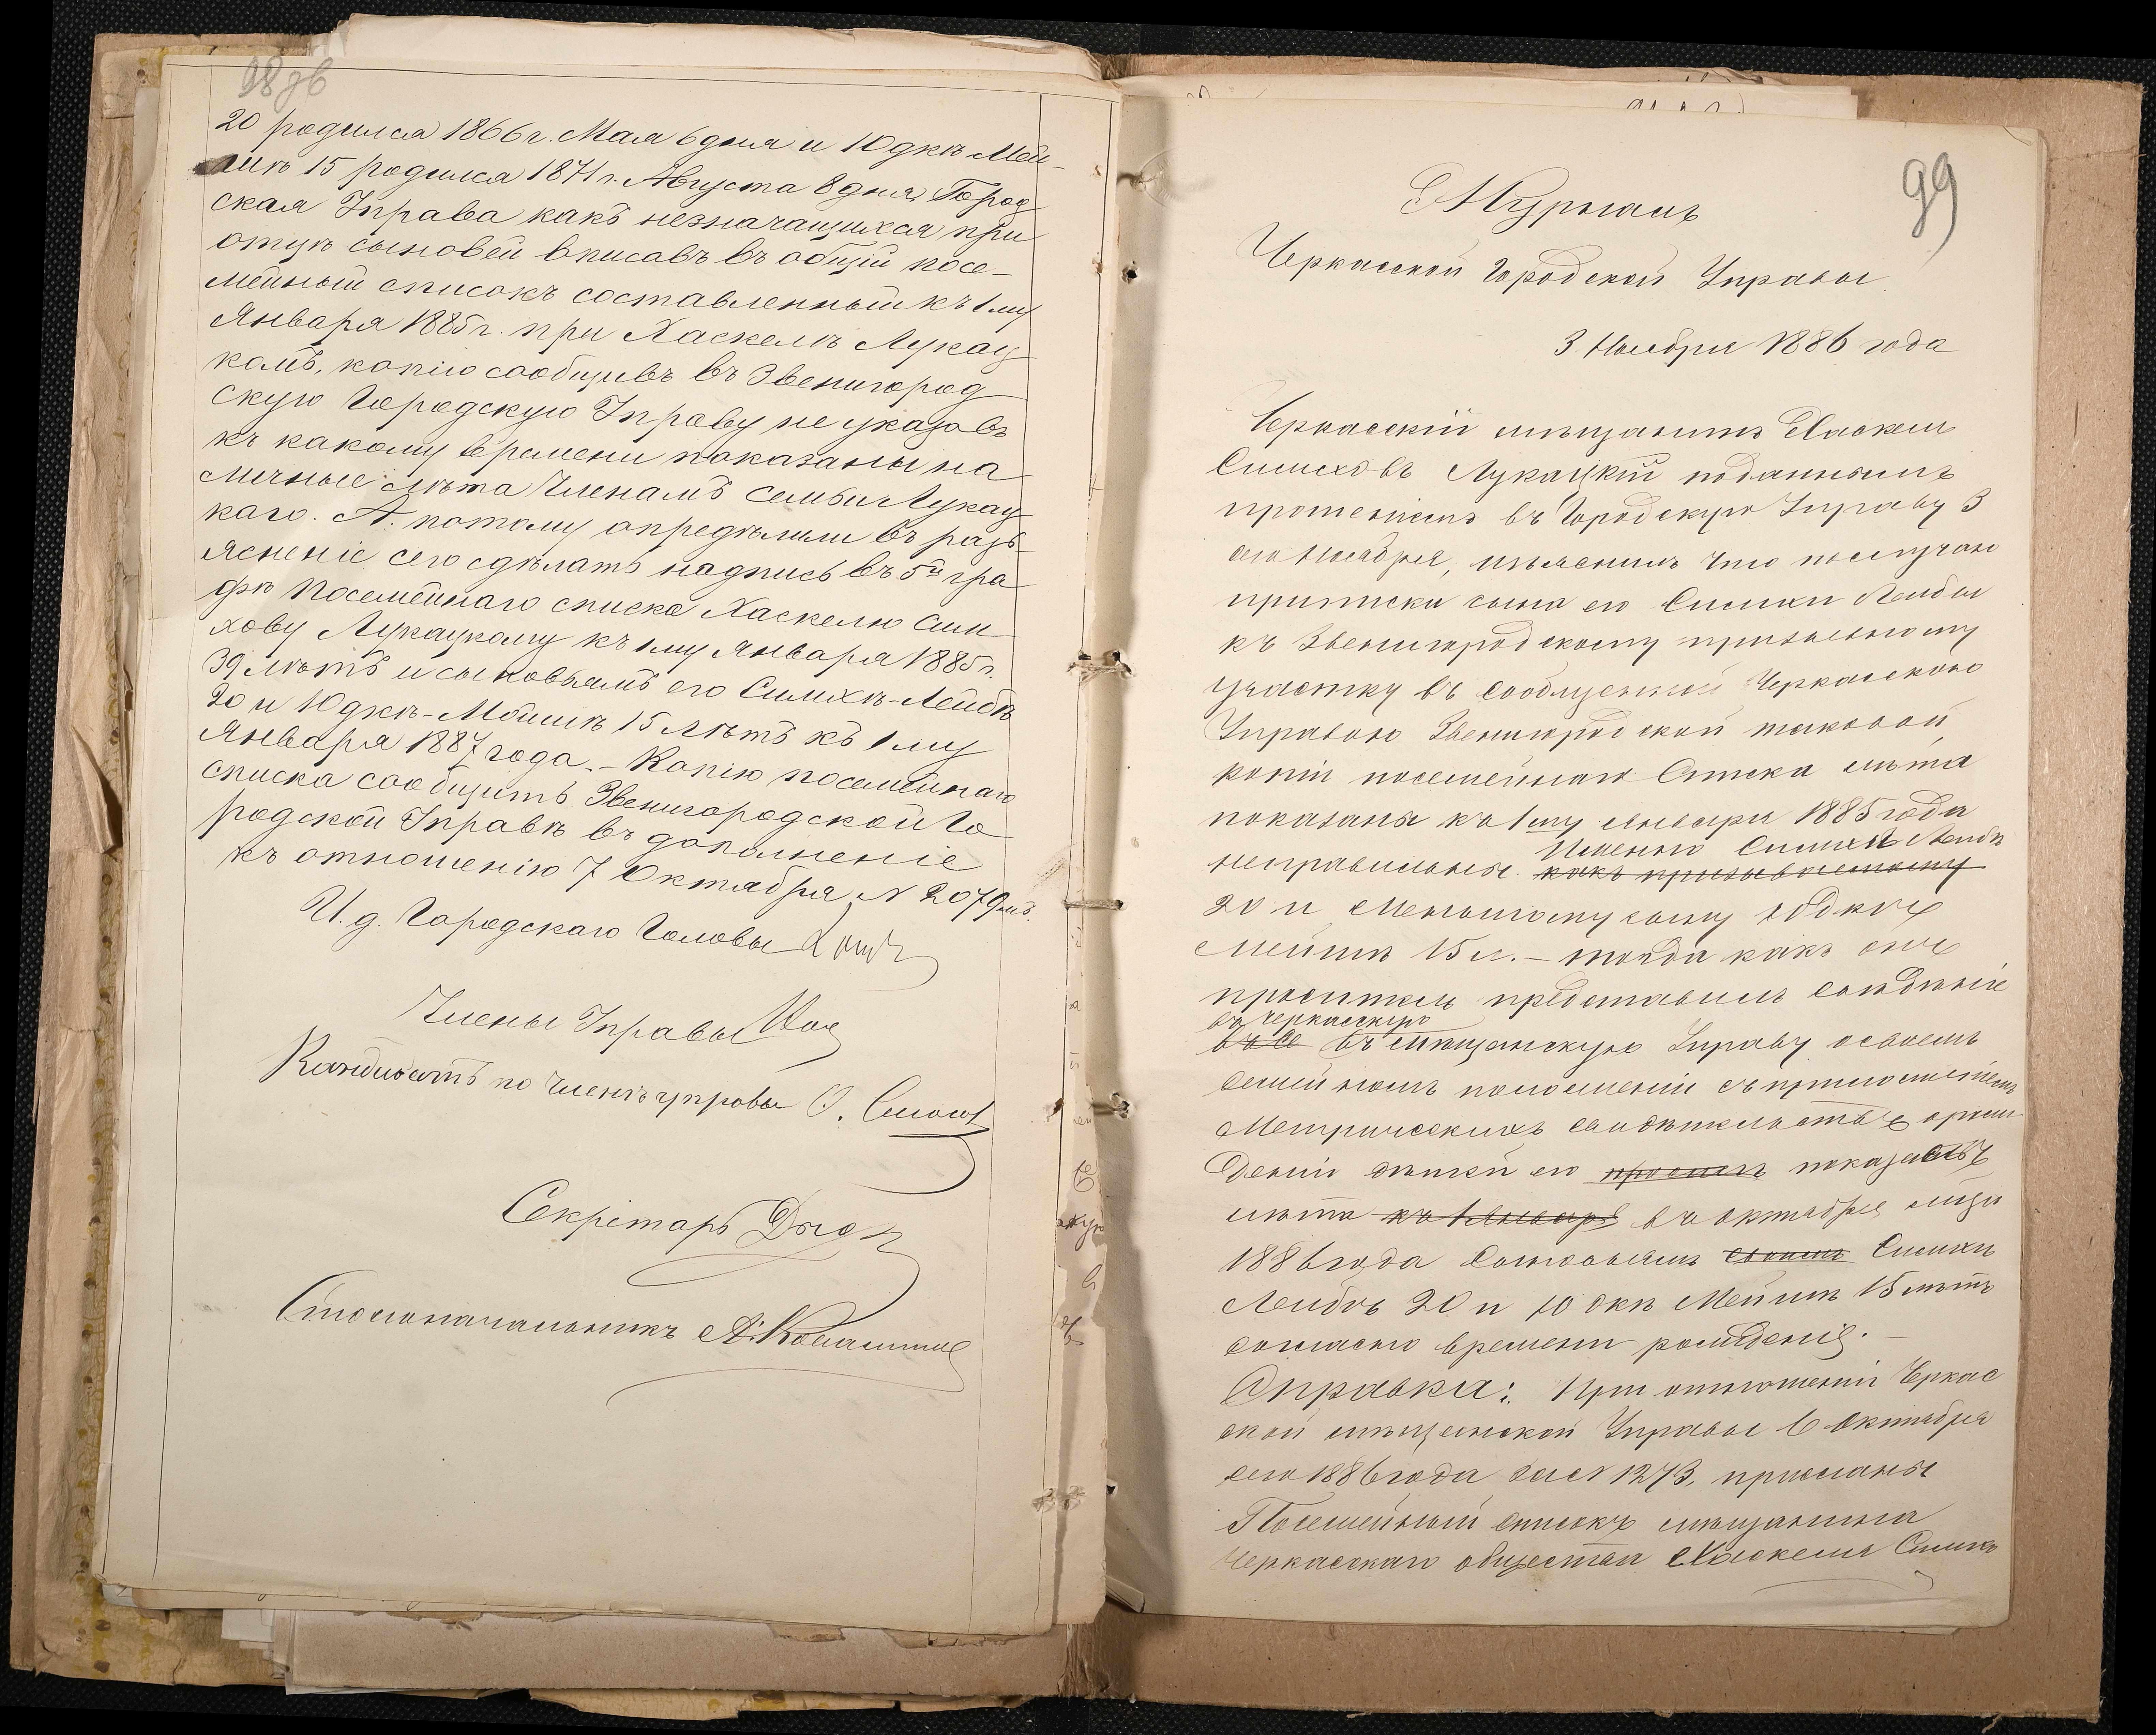 98 об
20 родился 1866 г. Мая 6 дня и Юдкѣ Мей-
шѣ 15 родился 1871 г. Августа 8 дня, Город
ская Управа какъ незначащихся при
отцѣ сыновей вписавъ въ общій посе-
мейный списокъ составленный къ 1 му
Января 1885 г. при Хаскелѣ Лукац
комъ, копію сообщивъ въ Звенигород
скую Городскую Управу не указавъ
къ какому времени показаны на
личные лѣта Членамъ семьи Лукац
каго. А потому опредѣлили въ разъ
ясненіе сего сдѣлать надпись въ 5й гра
фѣ посемейнаго списка Хаскелю Сим
хову Лукацкому къ 1му Января 1885 г.
39 лѣтъ и сыновьямъ его Симхѣ-Лейбѣ
20 и Юдкѣ-Мошкѣ 15 лѣтъ къ 1 му
Января 1887 года. – Копію посемейнаго
списка сообщить Звенигородской Го
родской Управѣ въ дополненіе
къ отношенію 7 Октября N 2079
И. д. Городскаго Головы
Члены Управы
Кандидатъ по члену управы
Секретарь
Столоначальникъ
99
Журналъ
Черкасской Городской Управы
3 Ноября 1886 года
Черкасскій мѣщанинъ Хаскель
Симховъ Лукацкій поданнымъ
прошеніемъ въ Городскую Управу 3
сего Ноября, изъяснилъ что по случаю
приписки сына его Симхи Лейбы
къ Звенигородскому призывному
участку въ сообщенной Черкасскою
Управою Звенигородской таковой,
копіи посемейнаго Списка лѣта
показаны къ 1 му января 1885 года
Именно Симхѣ Лейбѣ
неправильныя. какъ призываемому
20 и Меньшому сыну Юдкѣ
Мейшѣ 15 л. – тогда какъ онъ
проситель представилъ свѣдѣніе
въ Черкасскую
въ Се въ мѣщанскую Управу о своемъ
Семейномъ положеніи съ приложеніемъ
Метрическихъ свидѣтельствъ о рож
деніи дѣтей его проситъ показавъ
лѣта къ 1 Января въ октябрѣ м-цѣ
1886 года Сыновьямъ своимъ Симхѣ
Лейбѣ 20 и Юдкѣ Мейшѣ 15 лѣтъ
согласно времени рожденія. –
Справка: При отношеніи Черкас
ской мѣщанской Управы 6 Октября
сего 1886 года за N 1273, присланъ
Посемейный списокъ мѣщанина
Черкасскаго общества Хаскеля Симхо